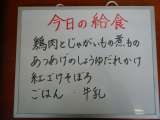 今日の給食
鶏肉とじゃがいもの煮もの
あつあげのしょうゆだれかけ
紅ざけそぼろ
ごはん 牛乳